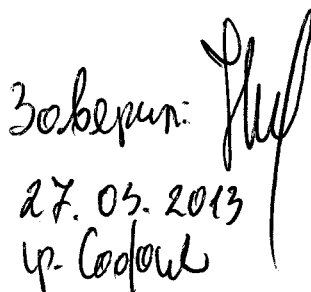 Заверил:
27. 03. 2013
гр. София